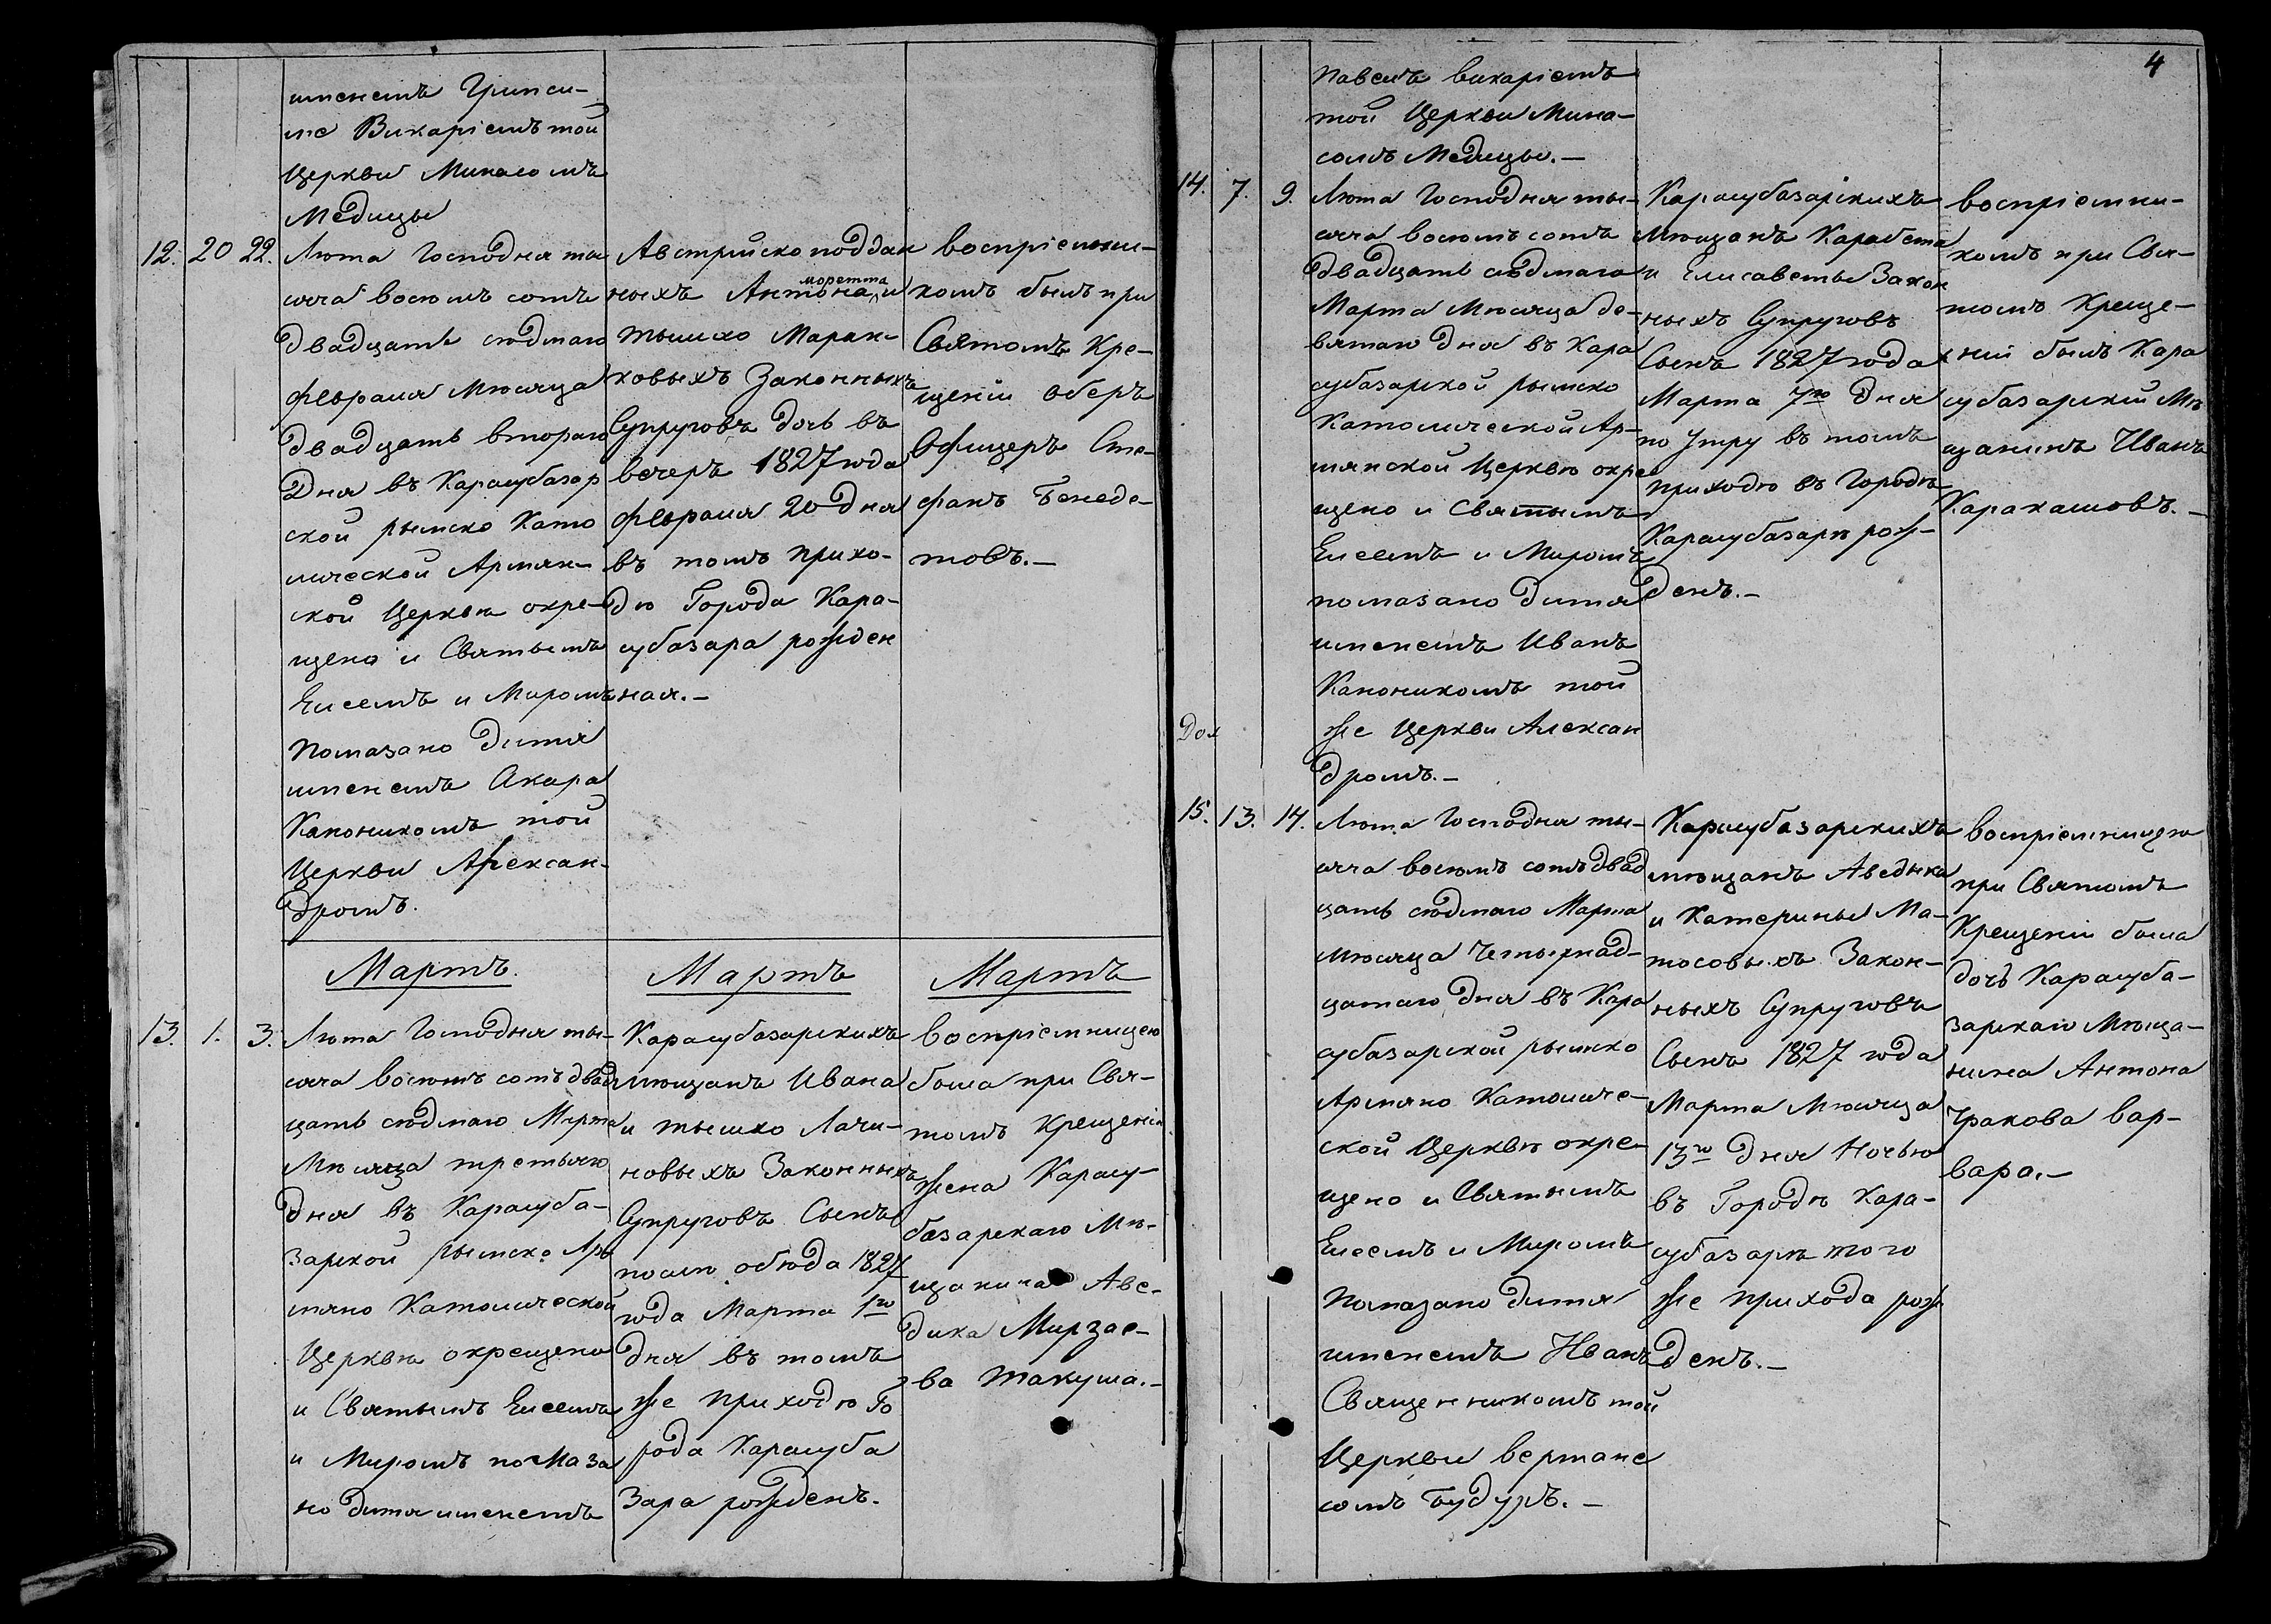 именемъ Грипси-
ме Викаріемъ той
Церкви Минасомъ
Медицы
12. 20 22. Лѣта Господня ты
сяча восемь сотъ
двадцать седмаго
февраля Мѣсяца
двадцать втораго
Дня въ Карасубазар
ской рымско Като
лической Армян-
ской Церкви окре-
щено и Святымъ
Елеемъ и Миромъ
помазано дитя
именемъ Акара
Каноникомъ той
Церкви Алексан-
дромъ.
Австрійско поддан
ныхъ Антона моретта и
тышхо Маран-
ковыхъ Законныхъ
Супруговъ дочь въ
вечеръ 1827 года
февраля 20 дня
въ томъ прихо-
дѣ Города Кара-
субазара рожден
ная.-
воспріемни-
комъ былъ при
Святомъ Кре-
щеніи оберъ
Офицеръ Сте-
фанъ Бенеде-
товъ.-
Мартъ.
Мартъ
Мартъ
13. 1. 3. Лѣта Господня ты-
сяча восемь сотъ двад
цать седмаго Марта
Мѣсяца третьяго
дня въ Карасуба-
зарской рымско Ар
мяно Католической
Церкви окрещено
и Святымъ Елеемъ
и Миромъ помаза
но дитя именемъ
Карасубазарскихъ
мѣщанъ Ивана
и тышхо Лачи-
новыхъ Законныхъ
Супруговъ Сынъ
послѣ обѣда 1827
года Марта 1го
дня въ томъ
же приходѣ Го
рода Карасуба
зара рожденъ.
воспріемницею
была при Свя-
томъ Крещеніи
жена Карасу-
базарскаго Мѣ-
щанина Аве-
дика Мирзае-
ва Такуша.-
4
Павелъ викаріемъ
той Церкви Мина-
сомъ Медицы.-
14. 7. 9. Лѣта Господня ты-
сяча восемь сотъ
двадцать седмаго
Марта Мѣсяца де-
вятаго дня въ Кара
субазарской рымско
Католической Ар-
мянской Церкви окре
щено и Святымъ
Елеемъ и Миромъ
помазано дитя
именемъ Иванъ
Каноникомъ той
же Церкви Алексан
дромъ.-
Карасубазарскихъ
Мѣщанъ Карабета
и Елисаветы Закон
ныхъ Супруговъ
Сынъ 1827 года
Марта 7го Дня
по Утру въ томъ
приходѣ въ Городѣ
Карасубазарѣ рож-
денъ.-
воспріемни-
комъ при Свя-
томъ Креще-
ніи былъ Кара
субазарскій Мѣ
щанинъ Иванъ
Каракашовъ.-
15. 13. 14. Лѣта Господня ты-
сяча восемь сотъ двад
цать седмаго Марта
Мѣсяца четырнад-
цатаго дня въ Кара
субазарской рымско
Армяно Католиче-
ской Церкви окре-
щено и Святымъ
Елеемъ и Миромъ
помазано дитя
именемъ Иванъ
Священникомъ той
Церкви вертане
сомъ Будуръ.-
Карасубазарскихъ
мѣщанъ Аведика
и Катерины Ма-
тосовыхъ Закон-
ныхъ Супруговъ
Сынъ 1827 года
Марта Мѣсяца
13го дня Ночью
въ Городѣ Кара-
субазарѣ того
же прихода рож
денъ.-
воспріемницею
при Святомъ
Крещеніи была
дочь Карасуба-
зарскаго Мѣща-
нина Антона
Уракова Вар-
вара.-